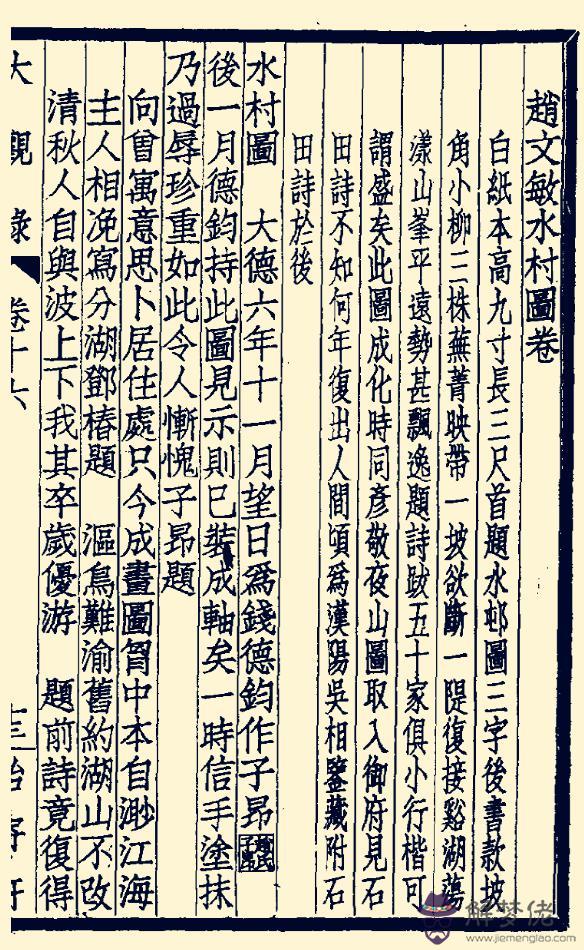 趙文敏水村圖卷
白紙本高九寸長三尺首題水邨圖三字後書款坡
角小柳三株蕪菁映帶一坡欲斷一隄復接谿湖蕩
漾山峯平遠勢甚飄逸題詩跋五十家俱小行楷可
謂盛矣此圖成化時同彥敬夜山圖取入御府見石
田詩不知何年復出人間頃爲漢陽吳相鑒藏附石
田詩於後
水村圖 大德六年十一月望日爲錢德鈞作子昂
後一月德鈞持此圖見示則已裝成軸矣一時信手塗抹
乃過辱珍重如此令人慚愧子昂題
向曾寓意思卜居住處只今成畫圖胷中本自渺江海
主人相浼寫分湖鄧椿題 漚鳥難渝舊約湖山不改
清秋人自與波上下我其卒歲優游 題前詩竟復得
大觀錄 卷十六
解梦佬
www.jiemenglao.com